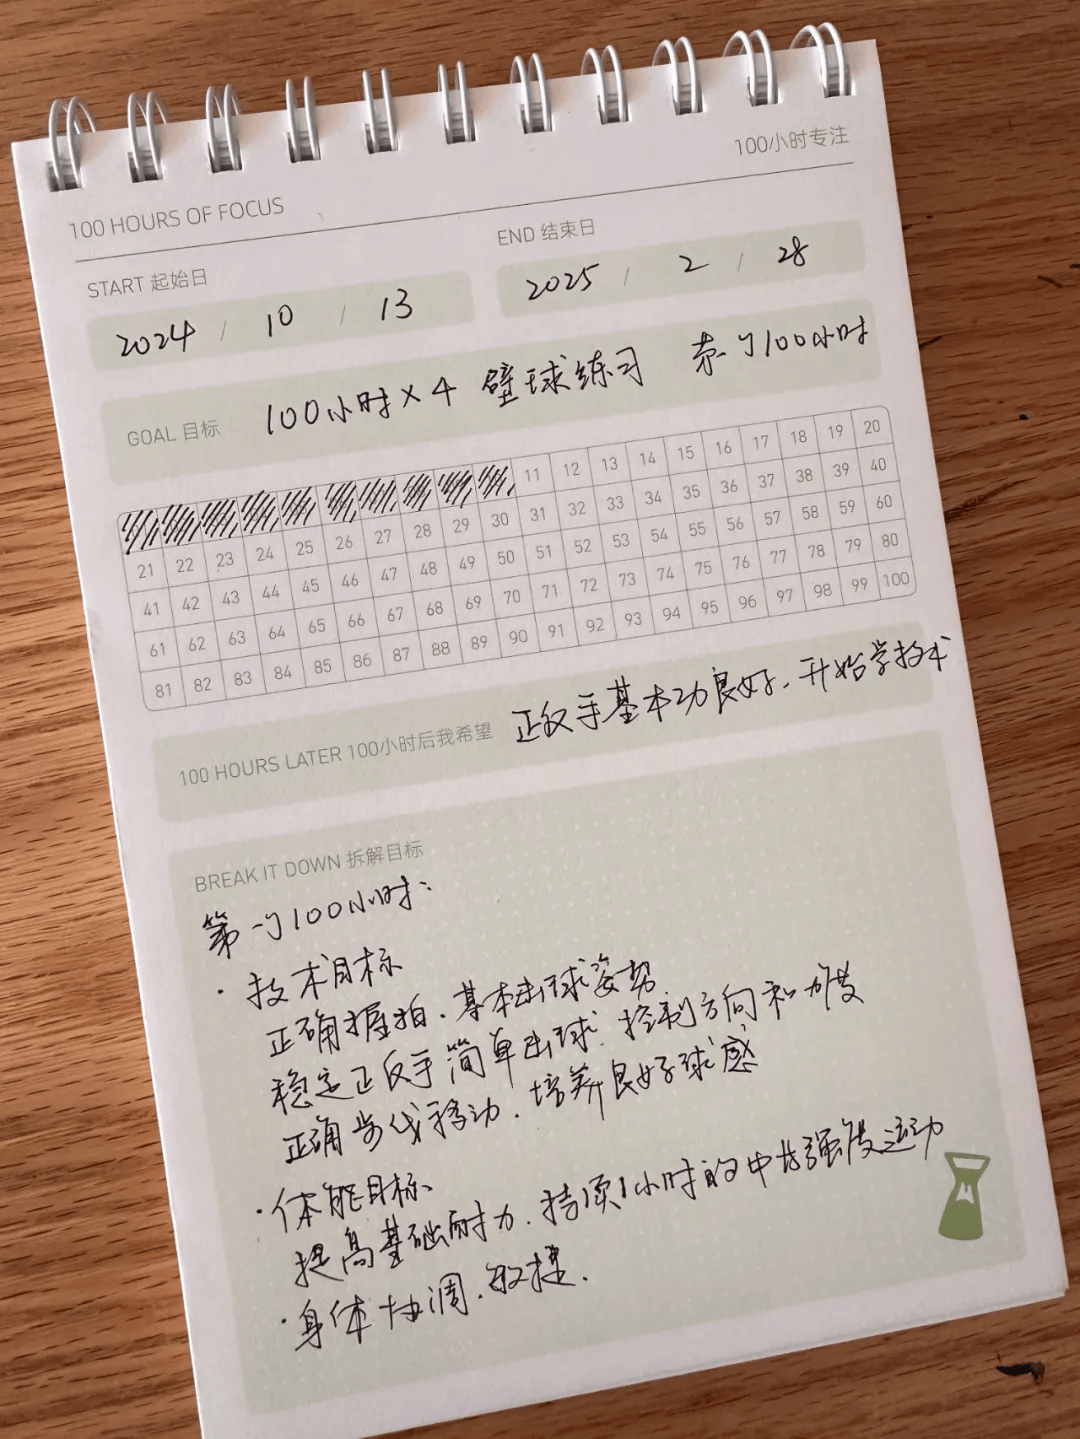 100小时专注
100 HOURS OF FOCUS
START 起始日
END 结束日
2024 / 10 / 13
2025 / 2 / 28
GOAL 目标
100小时×4 壁球练习 第一个100小时
11 12 13 14 15 16 17 18 19 20
21 22 23 24 25 26 27 28 29 30 31 32 33 34 35 36 37 38 39 40
41 42 43 44 45 46 47 48 49 50 51 52 53 54 55 56 57 58 59 60
61 62 63 64 65 66 67 68 69 70 71 72 73 74 75 76 77 78 79 80
81 82 83 84 85 86 87 88 89 90 91 92 93 94 95 96 97 98 99 100
100 HOURS LATER 100小时后我希望
正反手基本功良好.开始学技术
BREAK IT DOWN 拆解目标
第一个100小时:
· 技术目标
正确握拍.基本击球姿势.
稳定正反手简单击球.控制方向和力度
正确步伐移动.培养良好球感
· 体能目标.
提高基础耐力.持续1小时的中高强度运动
· 身体协调.敏捷.